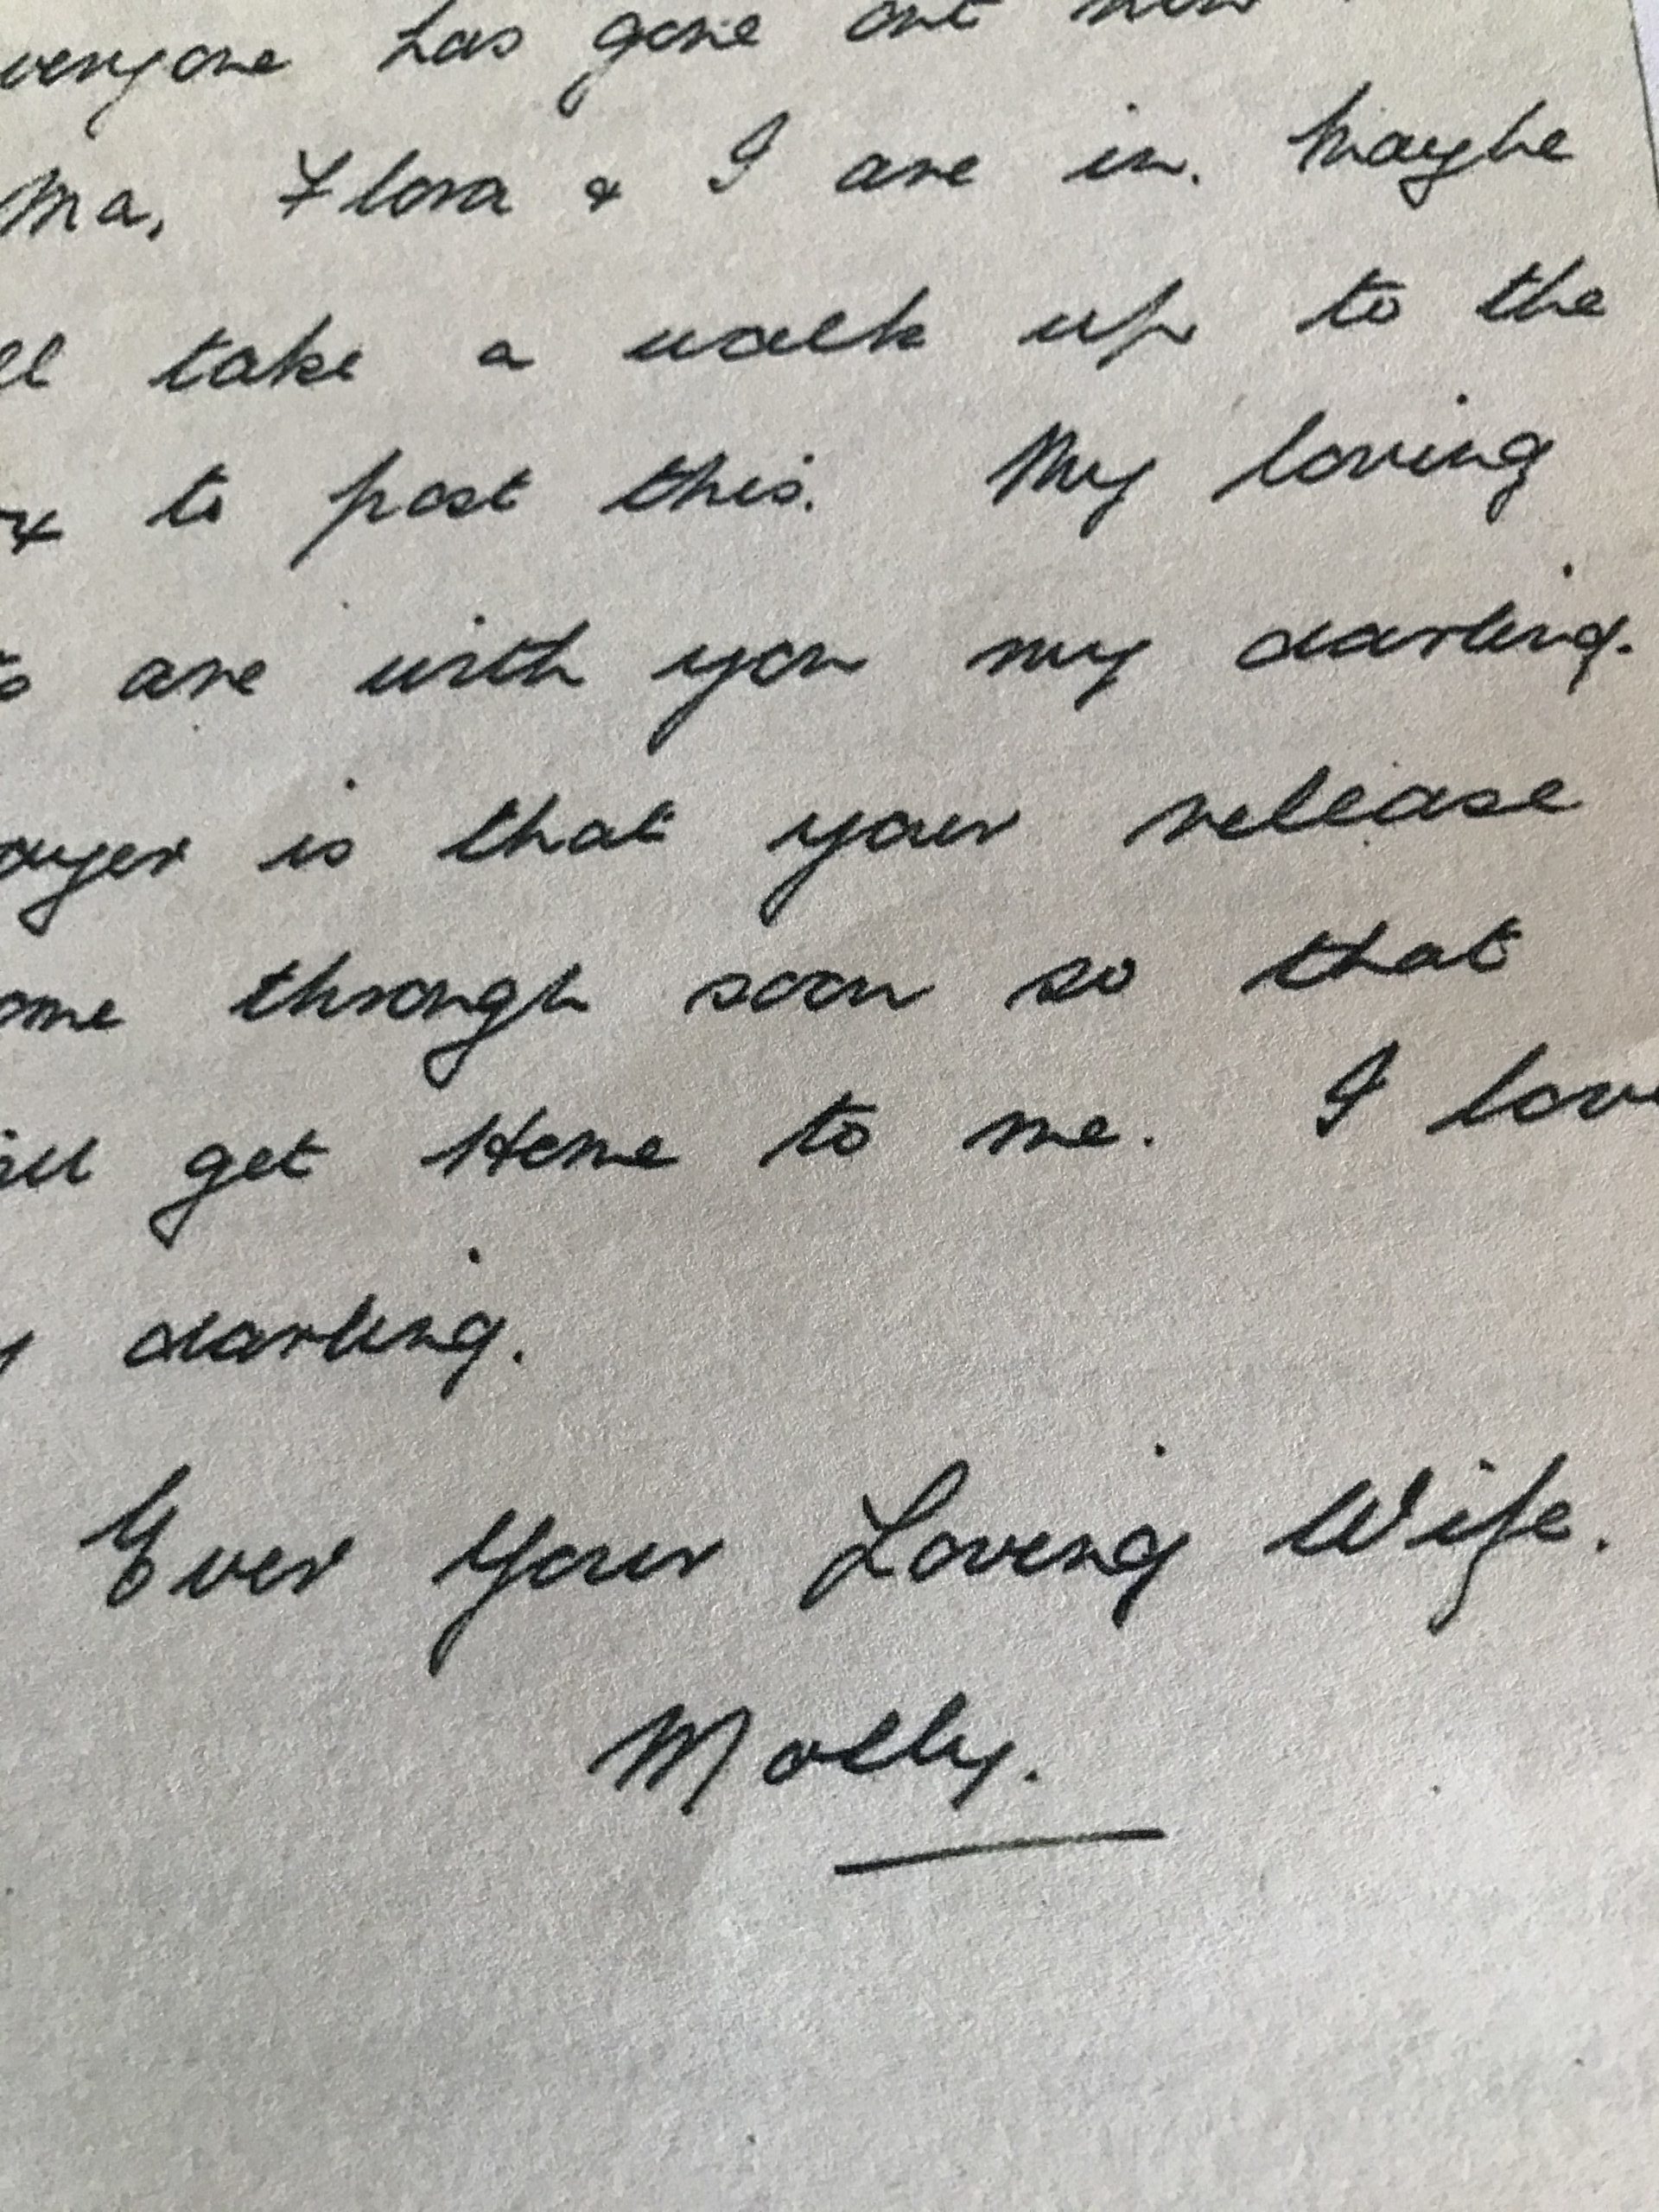 veryone has gone out now
Ma, Flora & I are in. Maybe
ll take a walk up to the
ox to post this. My loving
s are with you my darling.
ayer is that your release
ome through soon so that
ill get Home to me. I love
y darling.
Ever Your Loving Wife.
Molly.